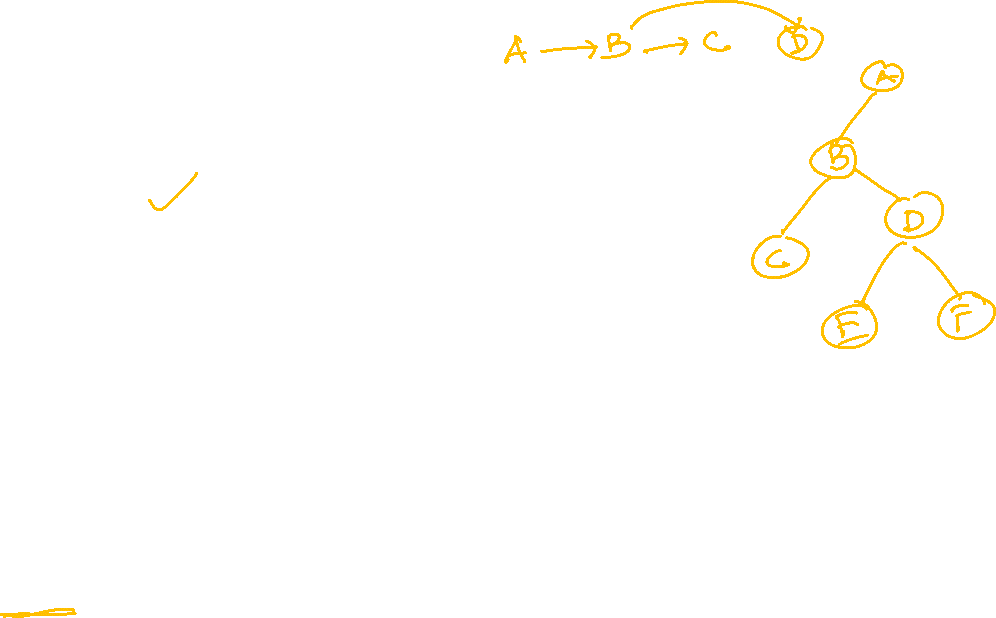 A → B → C D
A
B
D
C
E F